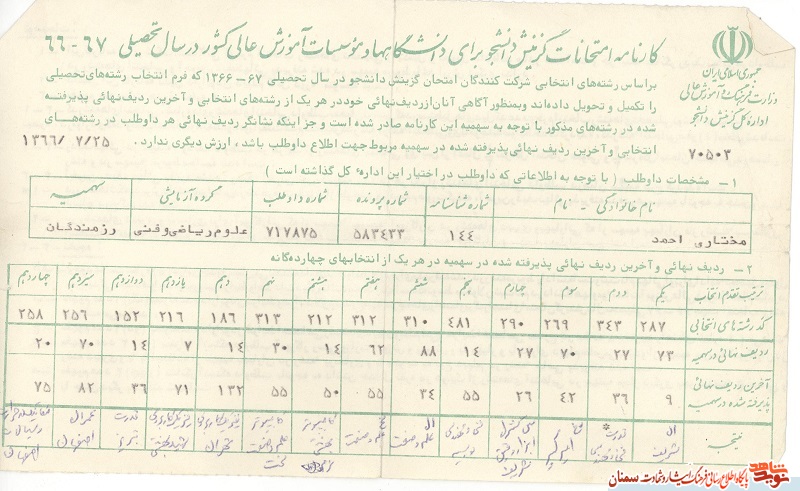 کارنامه امتحانات گزینش دانشجو برای دانشگاهها و مؤسسات آموزش عالی کشور در سال تحصیلی ۶۷ - ۶۶
جمهوری اسلامی ایران
وزارت فرهنگ و آموزش عالی
اداره کل گزینش دانشجو
۷۰۵۰۳
براساس رشته‌های انتخابی شرکت کنندگان امتحان گزینش دانشجو در سال تحصیلی ۶۷ - ۱۳۶۶ که فرم انتخاب رشته‌های تحصیلی
را تکمیل و تحویل داده‌اند و بمنظور آگاهی آنان از ردیف نهائی خود در هر یک از رشته‌های انتخابی و آخرین ردیف نهائی پذیرفته
شده در رشته‌های مذکور با توجه به سهمیه این کارنامه صادر شده است و جز اینکه نشانگر ردیف نهائی هر داوطلب در رشته‌های
انتخابی و آخرین ردیف نهائی پذیرفته شده در سهمیه مربوط جهت اطلاع داوطلب باشد ، ارزش دیگری ندارد .
۱۳۶۶/ ۷/۲۵
۱ - مشخصات داوطلب ( با توجه به اطلاعاتی که داوطلب در اختیار این اداره کل گذاشته است )
نام خانوادگی - نام شماره شناسنامه شماره پرونده شماره داوطلب گروه آزمایشی سهمیه
مختاری احمد ۱۴۴ ۵۸۳۴۳۳ ۷۱۷۸۷۵ علوم ریاضی و فنی رزمندگان
۲ - ردیف نهائی و آخرین ردیف نهائی پذیرفته شده در سهمیه در هر یک از انتخابهای چهارده‌گانه
ترتیب تقدم انتخاب یکم دوم سوم چهارم پنجم ششم هفتم هشتم نهم دهم یازدهم دوازدهم سیزدهم چهاردهم
کد رشته‌های انتخابی ۲۸۷ ۳۴۳ ۲۶۹ ۲۹۰ ۴۸۱ ۳۱۰ ۳۱۲ ۲۱۲ ۳۱۳ ۱۸۶ ۲۱۶ ۱۵۲ ۲۵۶ ۲۵۸
ردیف نهائی در سهمیه ۷۳ ۲۷ ۷۰ ۲۷ ۱۴ ۸۸ ۶۲ ۱۴ ۳۰ ۱۴ ۷ ۱۴ ۷۰ ۲۰
آخرین ردیف نهائی پذیرفته شده در سهمیه ۹ ۳۶ ۴۲ ۲۶ ۵۵ ۳۴ ۵۵ ۵۰ ۵۵ ۱۳۲ ۷۱ ۳۶ ۸۲ ۷۵
نتیجه
شریف
علم و صنعت
علم و صنعت
کامپیوتر
بهشتی
کامپیوتر
علم و صنعت
تهران
شهید بهشتی
قدرت
تبریز
عمران
اصفهان
اصفهان
نوید شاهد
پایگاه اطلاع رسانی فرهنگ ایثار و شهادت سمنان